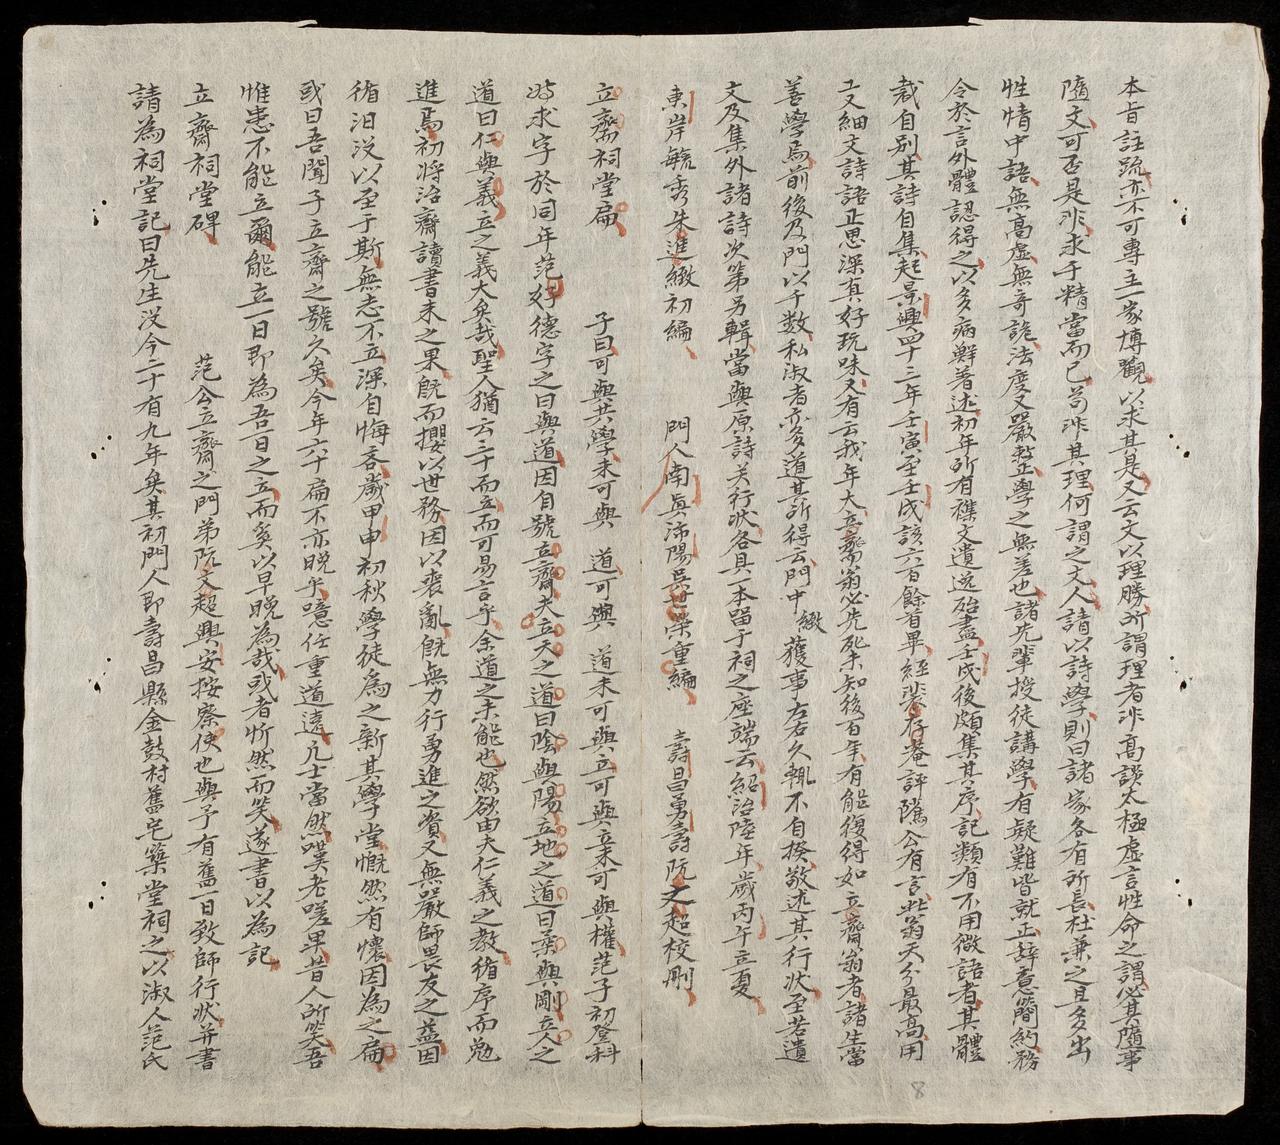 本旨註疏亦不可專主一家博觀以求其是又云文以理勝所謂理者非高談太極虛言性命之謂必其隨事
隨文可否是非求于精當而已苟非其理何謂之文人請以詩學則曰諸家各有所長杜兼之且多出
性情中語無高虛無奇詭法度又嚴整學之無差也諸先輩授徒講學有疑難皆就正辭意簡約務
令於言外體認得之以多病鮮著述初年所有襍文遺逆殆盡壬戌後頗集其序記類有不用微語者其體
裁自別其詩自集起景興四十三年壬寅至壬戌該六百餘首畢經裴存菴評隲公有言此翁天分最高用
工又細文詩語正思深真好玩味又有云我年大立齋翁必先死未知後百年有能復得如立齋翁者諸生當
善學焉前後及門以千数私淑者亦多道其所得云門中緻獲事左右久輒不自揆敬述其行状至若遺
文及集外諸詩次第另輯當與原詩关行状各具一本留于祠之座端云紹治陸年歲丙午立夏
東岸毓秀朱進緻初編 門人南眞沛陽吳世榮重編 壽昌勇壽阮文超校刪
立齋祠堂扁 子曰可與共學未可與 道可與 道未可與立可與立未可與權范子初登科
時求字於同年范好德字之曰與道因自號立齋夫立天之道曰陰與陽立地之道曰柔與剛立人之
道曰仁與義立之義大矣哉聖人猶云三十而立而可易言乎余道之未能也然欲由夫仁義之教循序而勉
進焉初将治齋讀書未之果既而攖以世務因以喪亂既無力行勇進之資又無嚴師畏友之益因
循汨沒以至于斯無志不立深自悔吝歲甲申初秋學徒為之新其學堂慨然有懷因為之扁
或曰吾聞子立齋之號久矣今年六十扁不亦晚乎噫任重道遠凡士當然嘆老嗟卑昔人所笑吾
惟患不能立爾能立一日即為吾一日之立而奚以早晚為哉或者忻然而笑遂書以為記
立齋祠堂碑 范公立齋之門弟阮文超興安按察使也與予有舊一日致師行状并書
請為祠堂記曰先生沒今二十有九年矣其初門人即壽昌縣金鼓村舊宅築堂祠之以淑人范氏
8